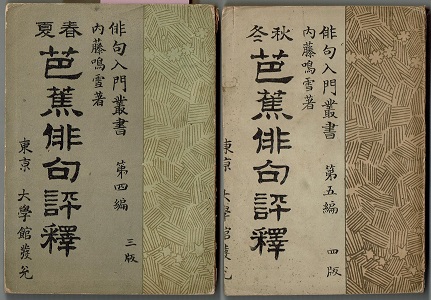 俳句入門叢書 第四編
內藤鳴雪著
春夏
芭蕉俳句評釋
東京 大學館發兌
三版
俳句入門叢書 第五編
內藤鳴雪著
秋冬
芭蕉俳句評釋
東京 大學館發兌
四版